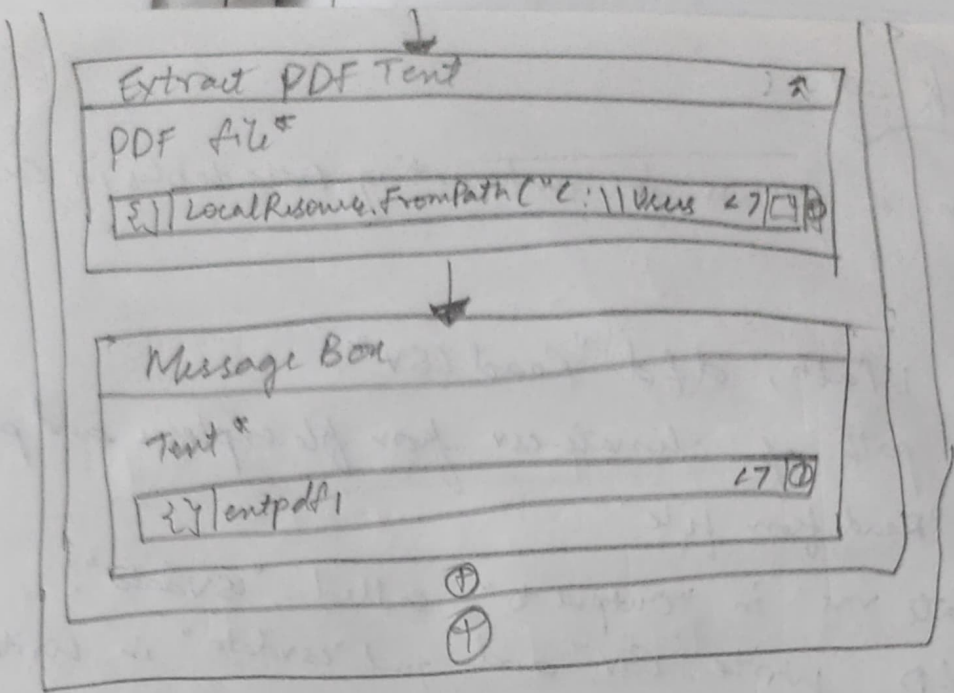 Extract PDF Text
PDF file*
{} LocalResource.FromPath("C:\\Users <>
Message Box
Text*
{} extpdf1 <>